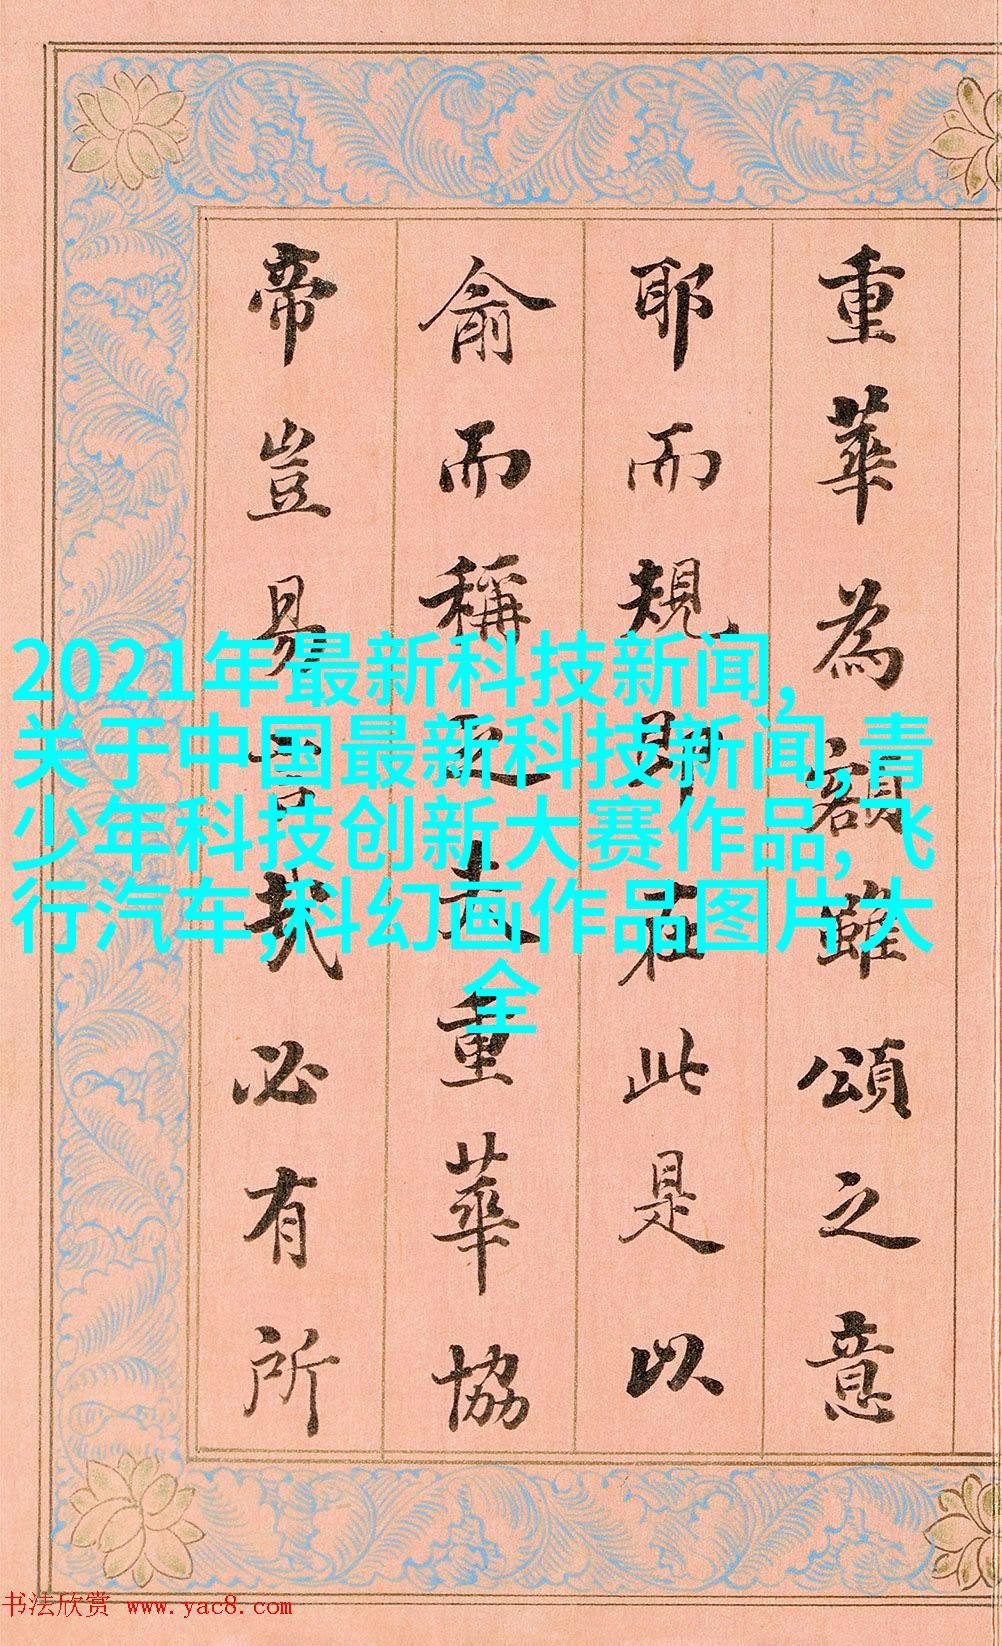 重華為額雖頌之意
耶而規即在此是以
俞而稱之大重華協
帝豈易言哉必有所
2021年最新科技新闻,
关于中国最新科技新闻,青
少年科技创新大赛作品,飞
行汽车,科幻画作品图片大
全
书法欣赏 www.yac8.com